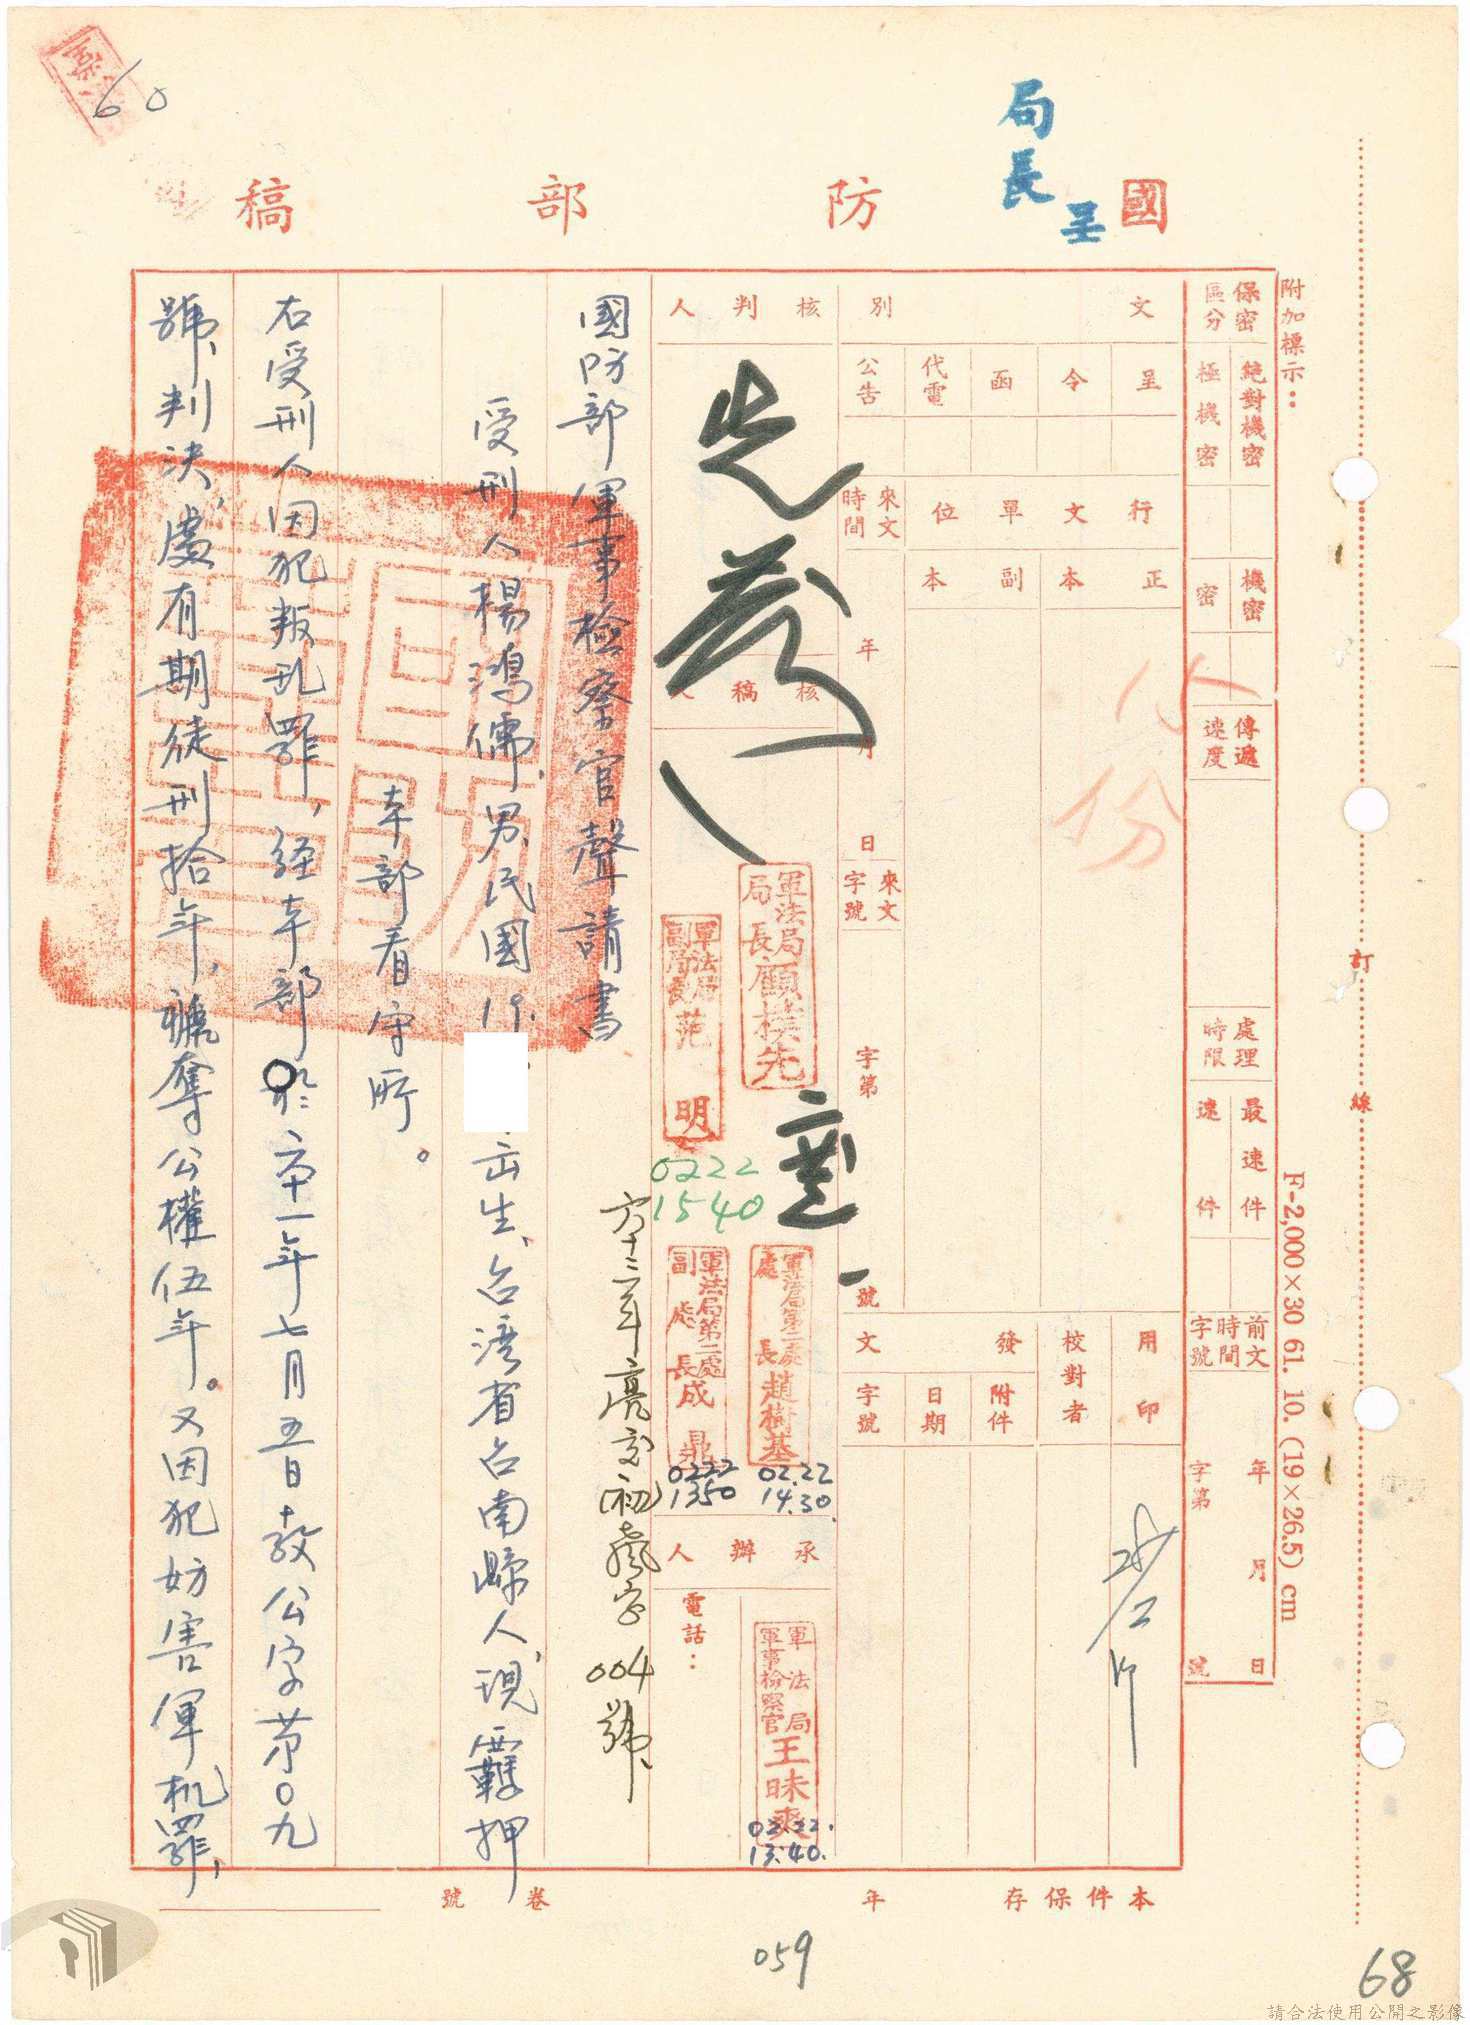 60
局長呈
國防部稿
訂線
附加標示：
F-2,000×30 61. 10. (19×26.5) cm
保密區分
絕對機密
極機密
機密
密
傳遞速度
處理時限
最速件
速件
前文時間字號
年月日
字第號
八份
文別
呈
令
函
代電
公告
行文單位
正本
副本
來文時間
年月日
來文字號
字第
號
用印
校對者
發文
附件
日期
字號
核判人
核稿人
軍法局局長顧樸先
軍法局副局長范明
0222
1540
軍法局第二處處長趙樹基
02.22
14.30.
軍法局第二處副處長成鼎
0222
1350
承辦人
電話：
軍法局軍事檢察官王昧爽
02.22.
13.40.
國防部軍事檢察官聲請書
六十二年亮字(初)字004號、
受刑人楊鴻儒、男、民國19.出生、台湾省台南縣人、現羈押
本部看守所。
右受刑人因犯叛乱罪，経本部於六十一年七月五日教公字第〇九
號、判決、處有期徒刑拾年、褫奪公權伍年。又因犯妨害軍机罪，
本件保存年
卷號
059
68
請合法使用公開之影像